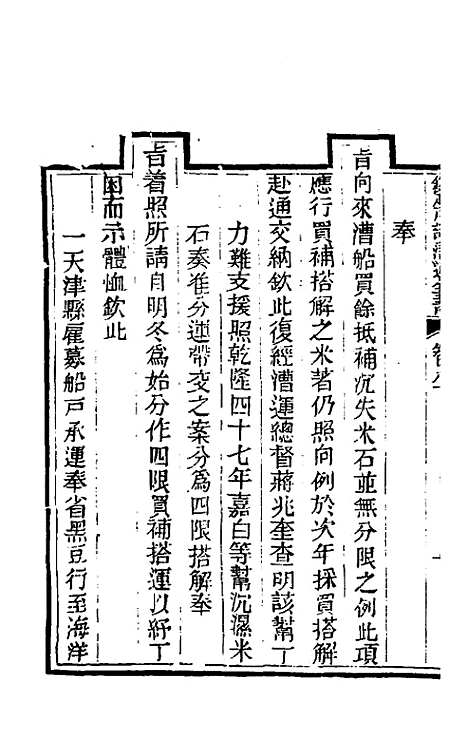 奉
旨向來漕船買餘抵補沉失米石並無分限之例此項
應行買補搭解之米著仍照向例於次年採買搭解
赴通交納欽此復經漕運總督蔣兆奎查明該幫丁
力難支援照乾隆四十七年嘉白等幫沉濕米
石奏准分運帶交之案分爲四限搭解奉
旨着照所請自明冬爲始分作四限買補搭運以紓丁
困而示體恤欽此
一天津縣雇募船戶承運奉省黑豆行至海洋